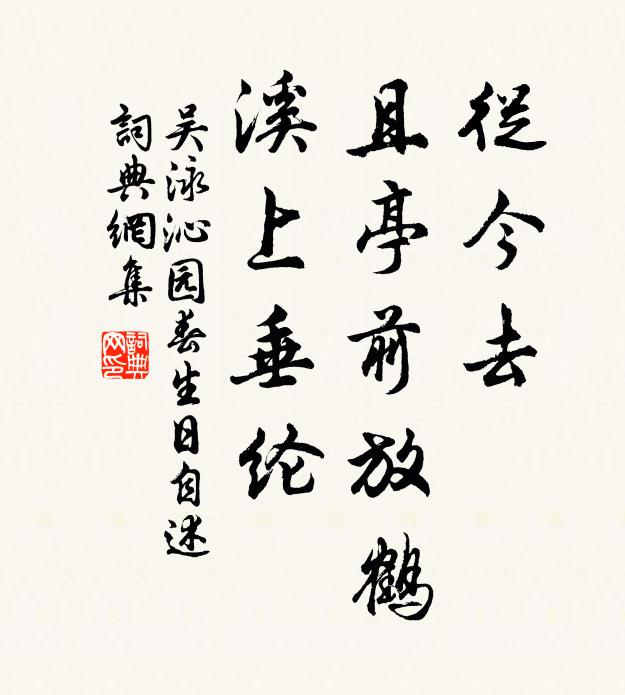 從今去
且亭前放鶴
溪上垂纶
吴泳沁园春生日自述
詞典網集
詞典網印